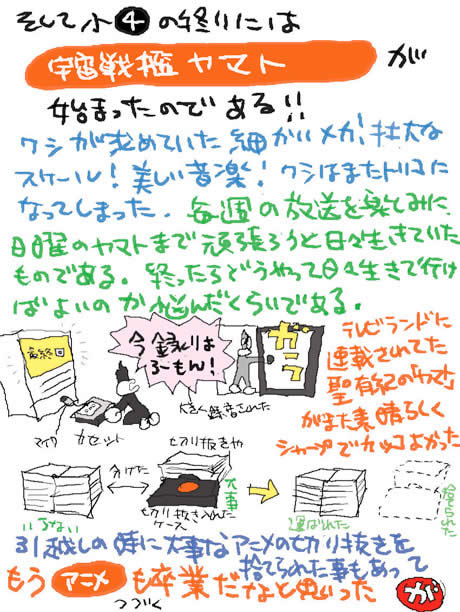 そして小4の終りには
宇宙戦艦ヤマトが
始まったのである!!
ワシが求めていた細かいメカ!壮大な
スケール!美しい音楽!ワシはまたトリコに
なってしまった.毎週の放送を楽しみに
日曜のヤマトまで頑張ろうと日々生きていた
ものである。終ったらどうやって日々生きて行け
ばよいのか悩んだくらいである.
最終回
今録りは
るーもん!
ガラッ
大きく録音された
マイク カセット
テレビランドに
連載されてた
聖有紀の「ヤマト」
がまた素晴らしく
シャープでカッコよかった
切り抜きや
分けた
大事
いらない
切り抜き入れた
ケース
運ばれた
捨てられた
引越しの時に大事なアニメの切り抜きを
捨てられた事もあって
もうアニメも卒業だなと思いった
つづく
が